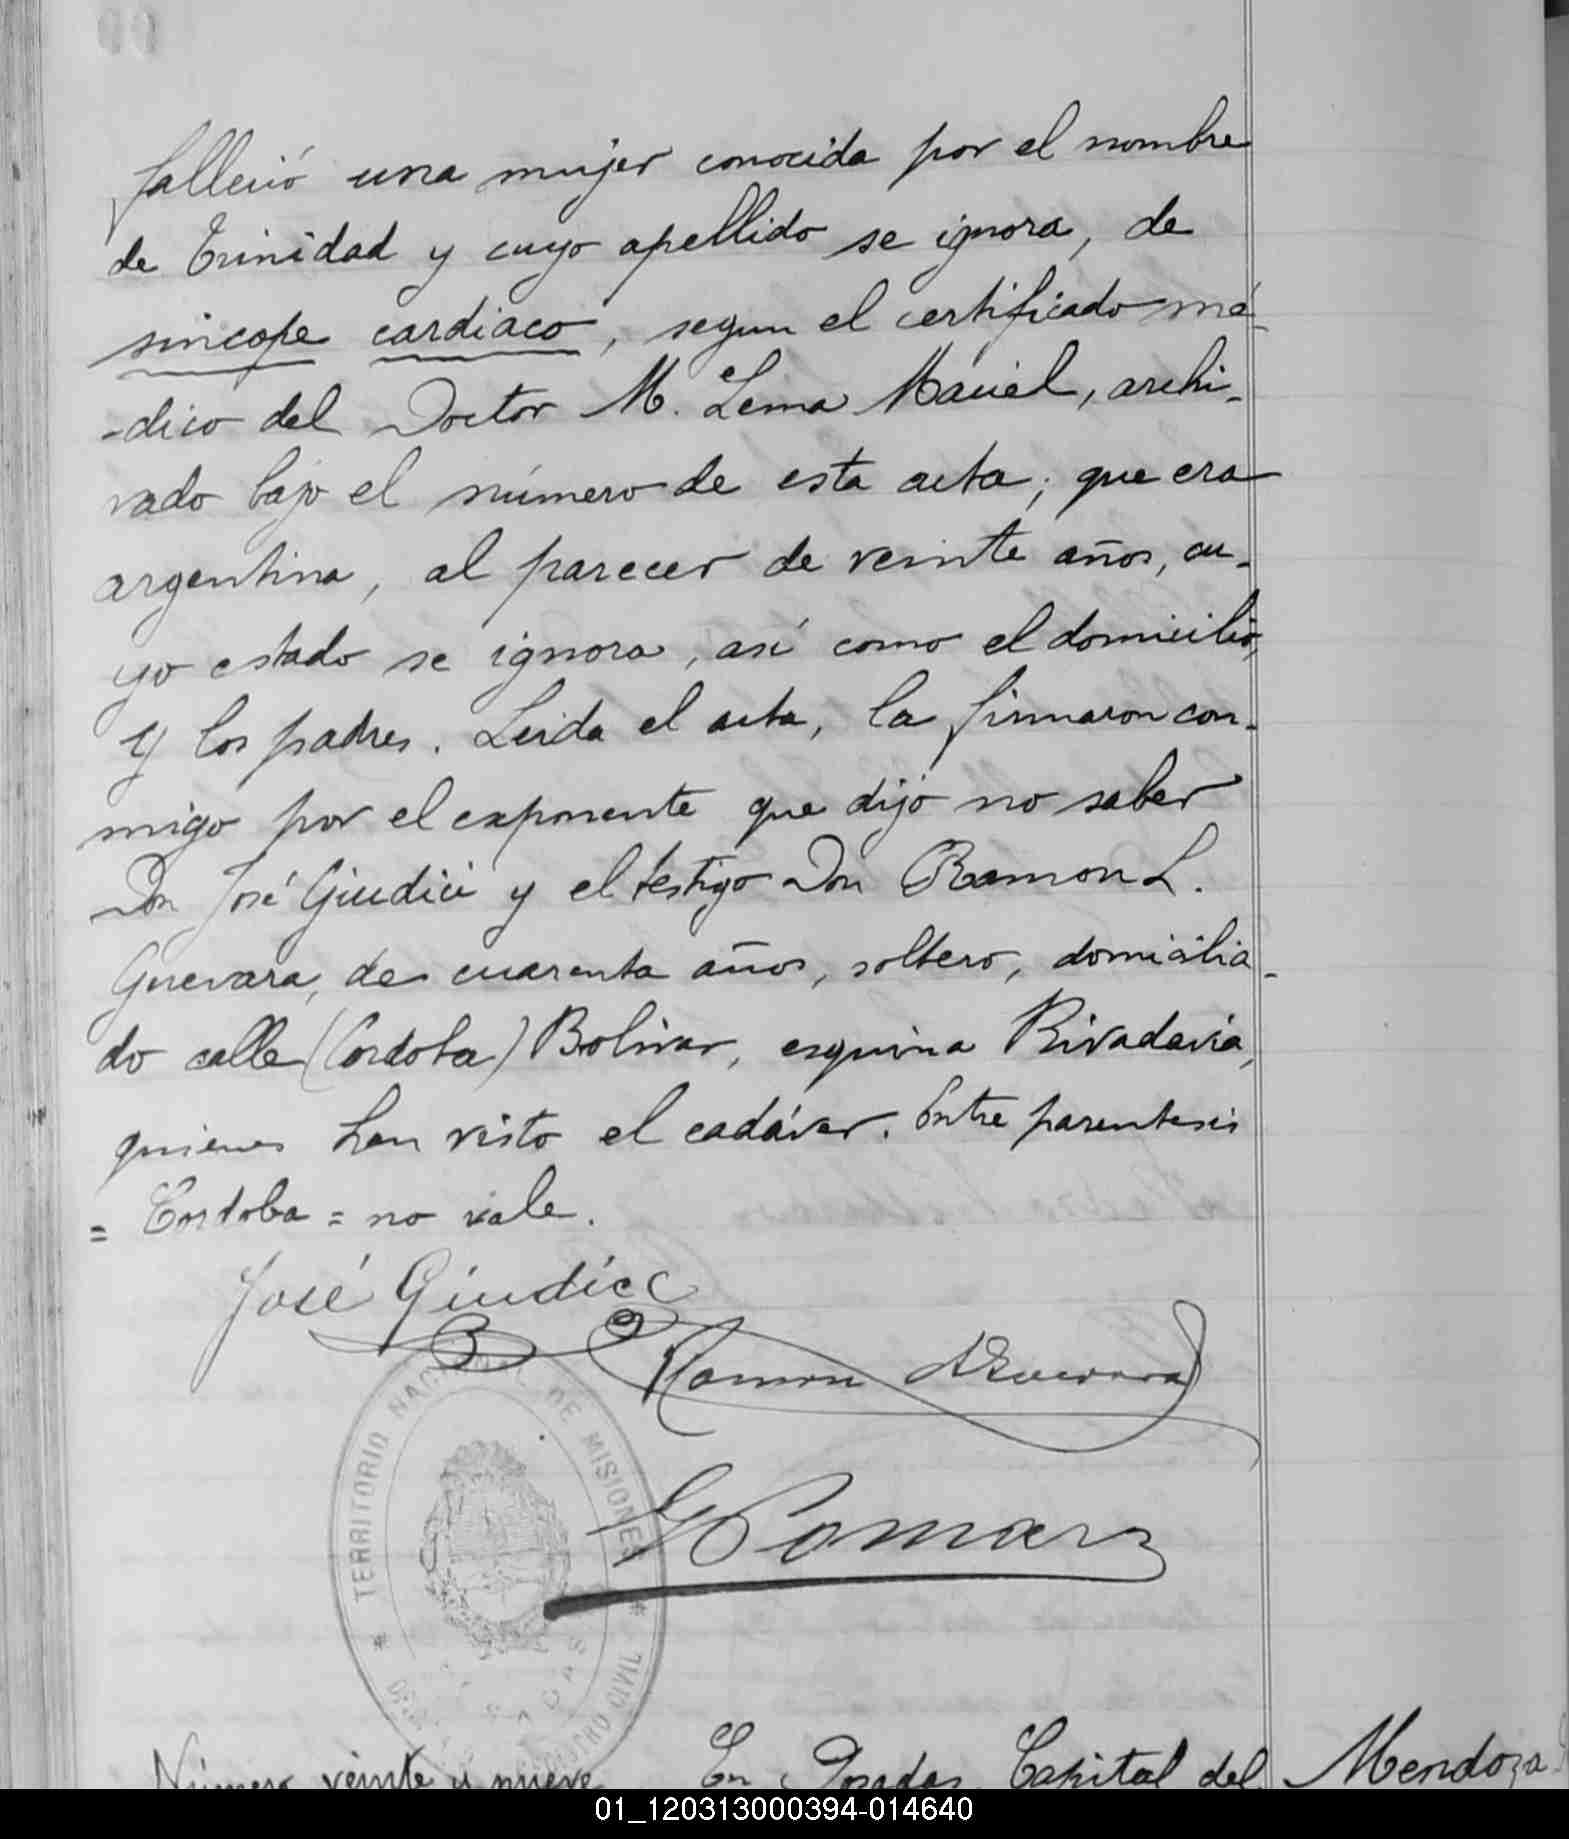 falleció una mujer conocida por el nombre
de Trinidad y cuyo apellido se ignora, de
sincope cardiaco, segun el certificado mé-
-dico del Doctor M. Lema Maciel, archi-
vado bajo el número de esta acta; que era
argentina, al parecer de veinte años, cu-
yo estado se ignora, así como el domicilio,
y los padres. Leida el acta, la firmaron con-
migo por el exponente que dijo no saber
Don José Giudici y el testigo Don Ramon L.
Guevara, de cuarenta años, soltero, domicilia-
do calle (Cordoba) Bolivar, esquina Rivadavia,
quienes han visto el cadáver. Entre parentesis
= Cordoba = no vale.
José Giudici
Ramon L Guevara
TERRITORIO NACIONAL DE MISIONES
REGISTRO CIVIL
POSADAS
Número veinte y nueve En Posadas, Capital del Mendoza
01_120313000394-014640